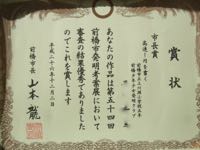 賞状
市長賞
あなたの作品は第五十四回
前橋市発明考案展において
審査の結果優秀でありました
のでこれを賞します
平成二十六年十二月二日
前橋市長
山本龍